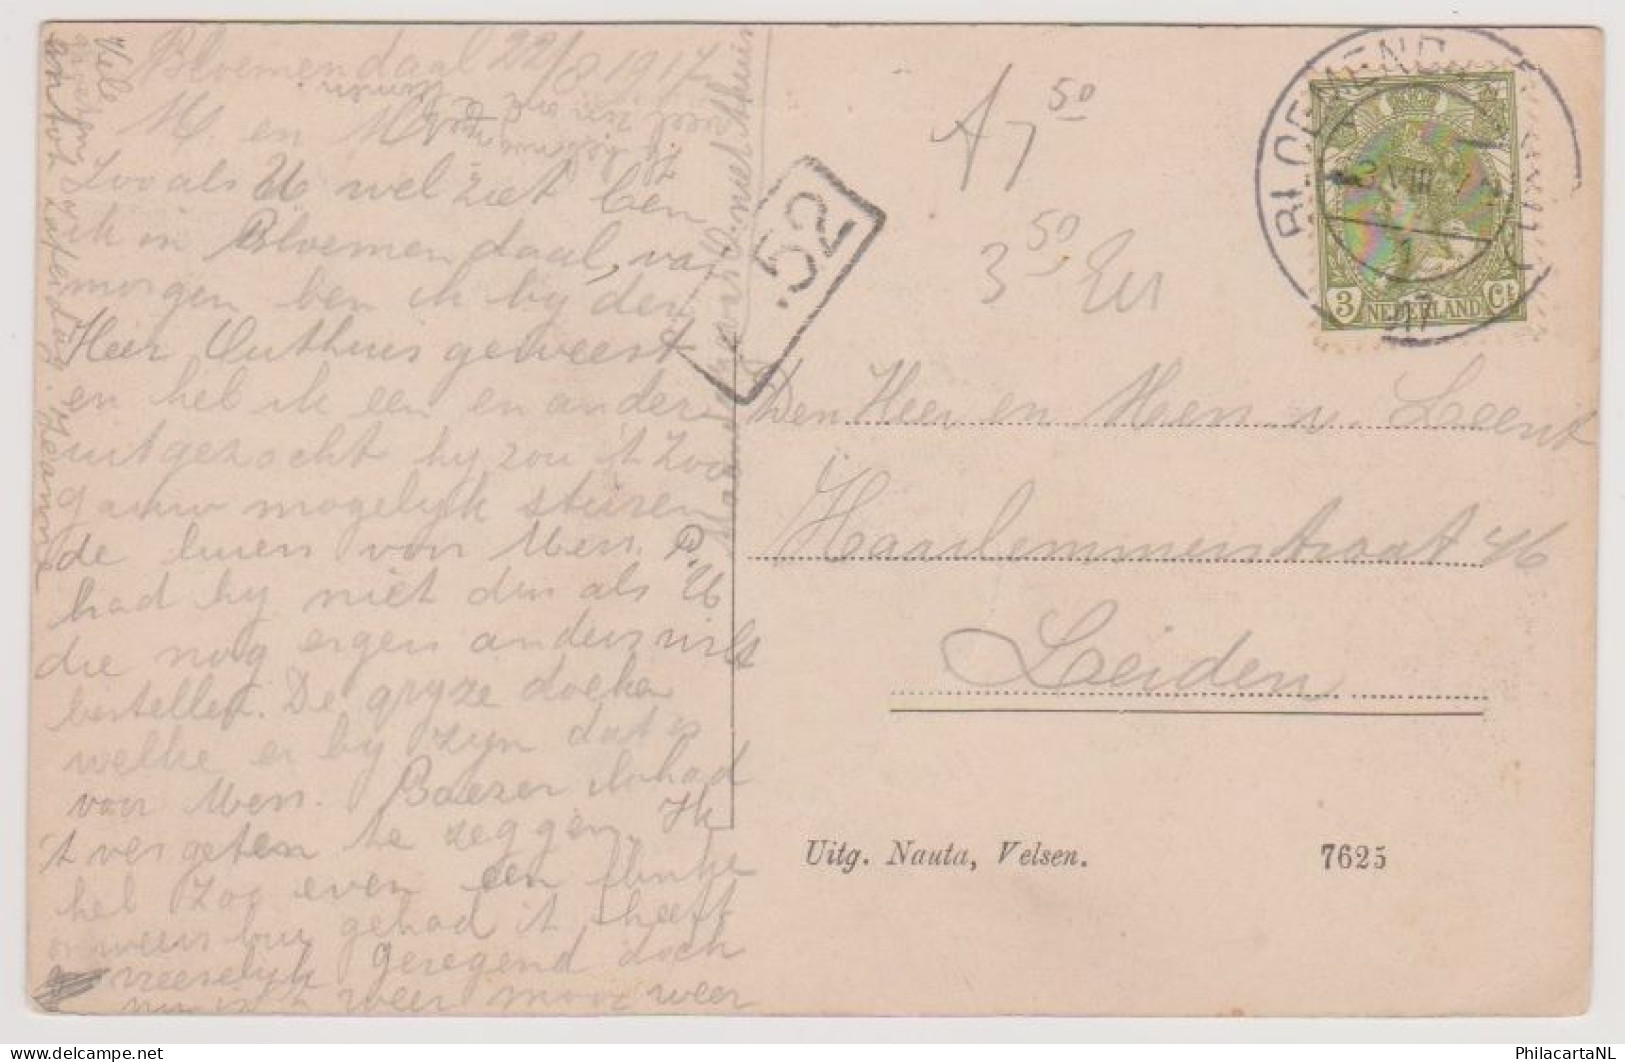 Bloemendaal 22/8 1917
M. en M
Zooals U wel ziet ben
ik in Bloemendaal, van
morgen ben ik by den
Heer Outhuis geweest
en heb ik een en ander
uitgezocht hy zou 't zoo
gauw mogelyk sturen
de luiers von Men. P.
had hy niet dus als U
die nog ergens anders wilt
bestellen. De gryze doeken
welke er by zyn dat is
voor Men. Baezer had
't vergeten te zeggen. Ik
heb zoo even een flinke
bui gehad it heeft
vreeselyk geregend doch
weer mooi weer
Vele
groeten
en tot Zaterdag.
A 7 50
3 50 Eu
52
BLOEMENDAAL
VIII
1
17
3 NEDERLAND Ct
Den Heer en Men v. Leent
Haarlemmerstraat 46
Leiden
Uitg. Nauta, Velsen. 7625
PhilacartaNL